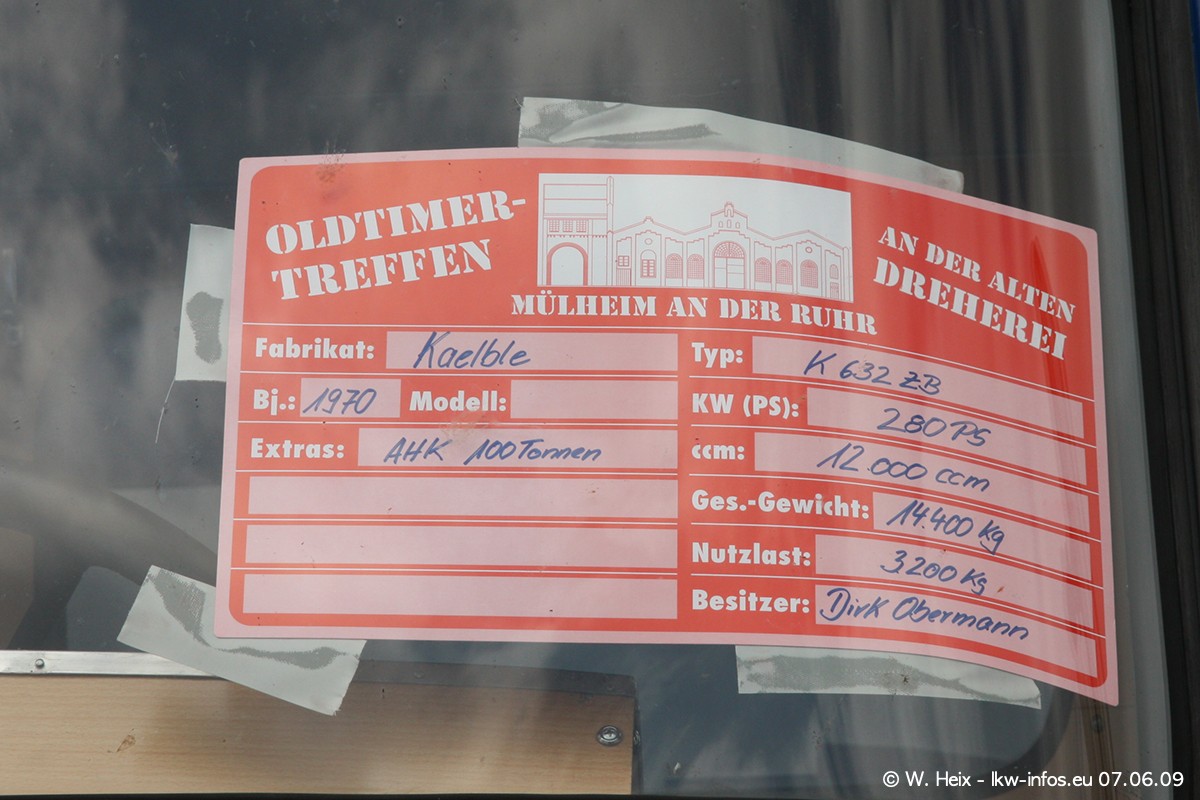 OLDTIMER-
TREFFEN
MÜLHEIM AN DER RUHR
AN DER ALTEN
DREHEREI
Fabrikat: Kaelble
Bj.: 1970 Modell:
Extras: AHK 100 Tonnen
Typ: K 632 ZB
KW (PS): 280 PS
ccm: 12.000 ccm
Ges.-Gewicht: 14.400 kg
Nutzlast: 3200 kg
Besitzer: Dirk Obermann
© W. Heix - lkw-infos.eu 07.06.09